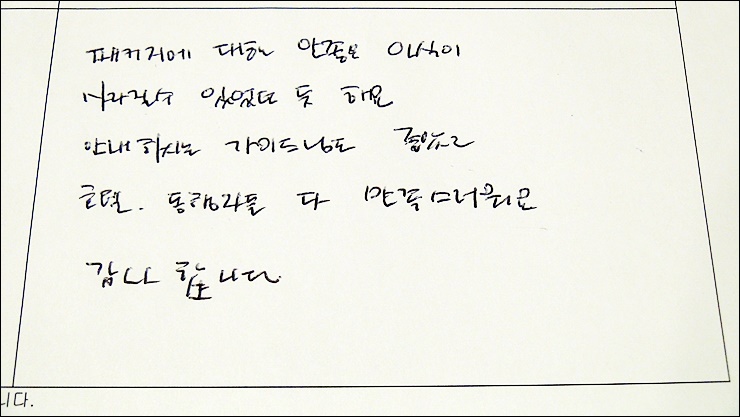 패키지에 대한 안좋은 인식이
사라질수 있었던 듯 해요
안내하시는 가이드님도 좋았고
호텔. 동행자들 다 만족스러워요
감사 합니다.
니다.